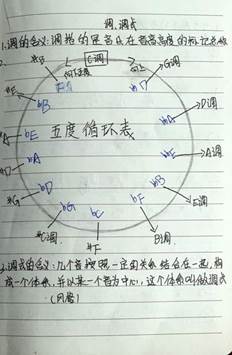 调.调式
1.调的含义:调指的是音乐在音高高度的标记
C调
G调
D调
bB
五度循环表
bE
A调
bA
bD
bB
#G
E调
bG
bF
#C调
bC
B调
#F
2.调式的含义:几个音按照一定的关系结合在一起,构
成一个体系,并以某一个音为中心,这个体系叫做调式
(风格)